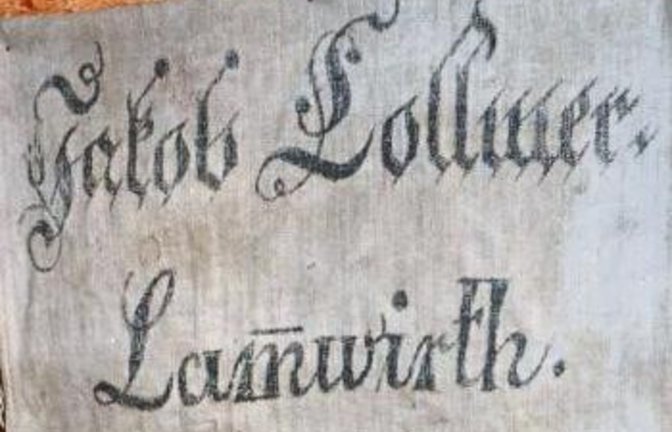 Jakob Collmer.
Lam̄wirth.